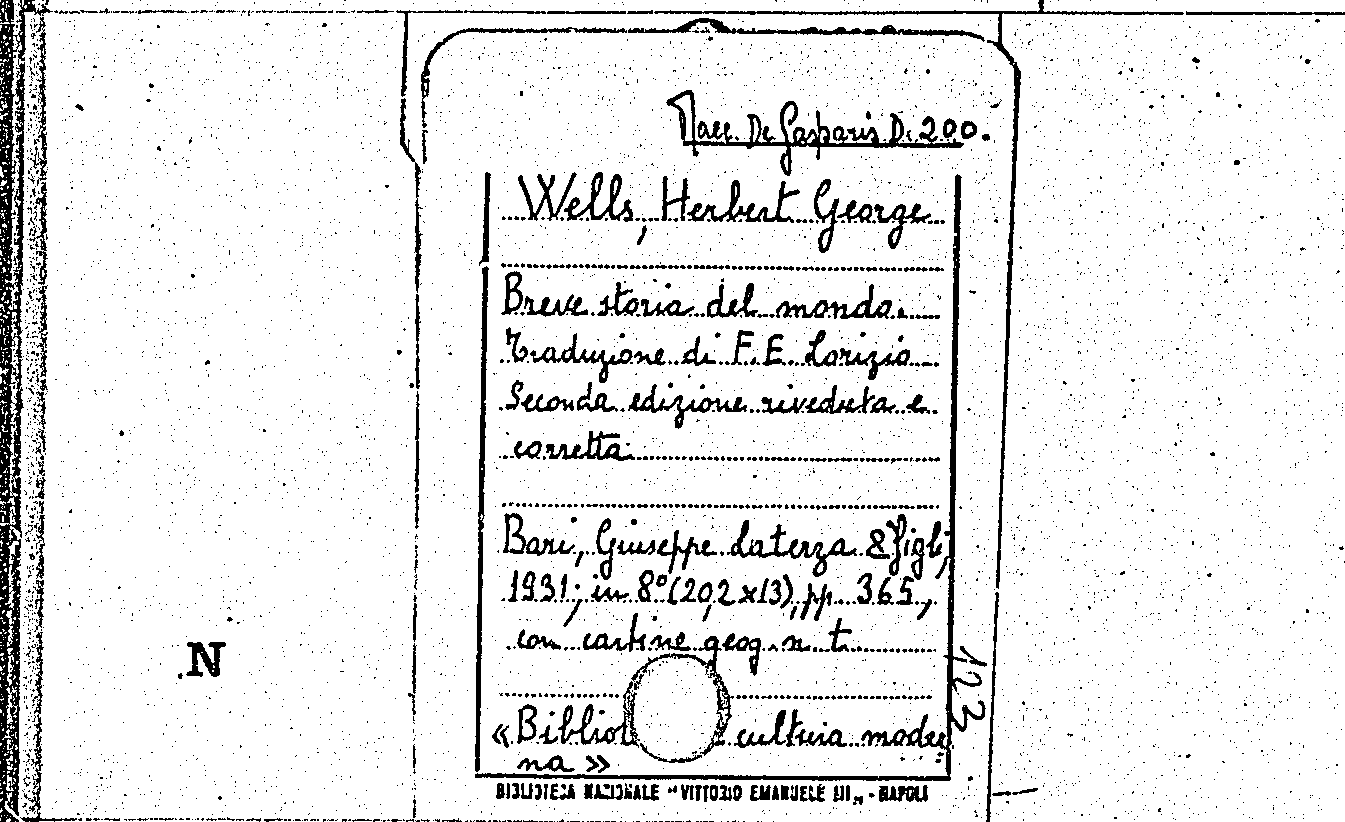 Racc. De Gasparis D. 200.
Wells, Herbert George
Breve storia del mondo.
Traduzione di F. E. Lorizio
Seconda edizione riveduta e
corretta.
Bari, Giuseppe Laterza & Figli,
1931; in 8° (20,2 x 13), pp. 365,
con cartine geog. n. t.
« Bibliot cultura moder
na »
123
N
BIBLIOTECA NAZIONALE "VITTORIO EMANUELE III„ - NAPOLI